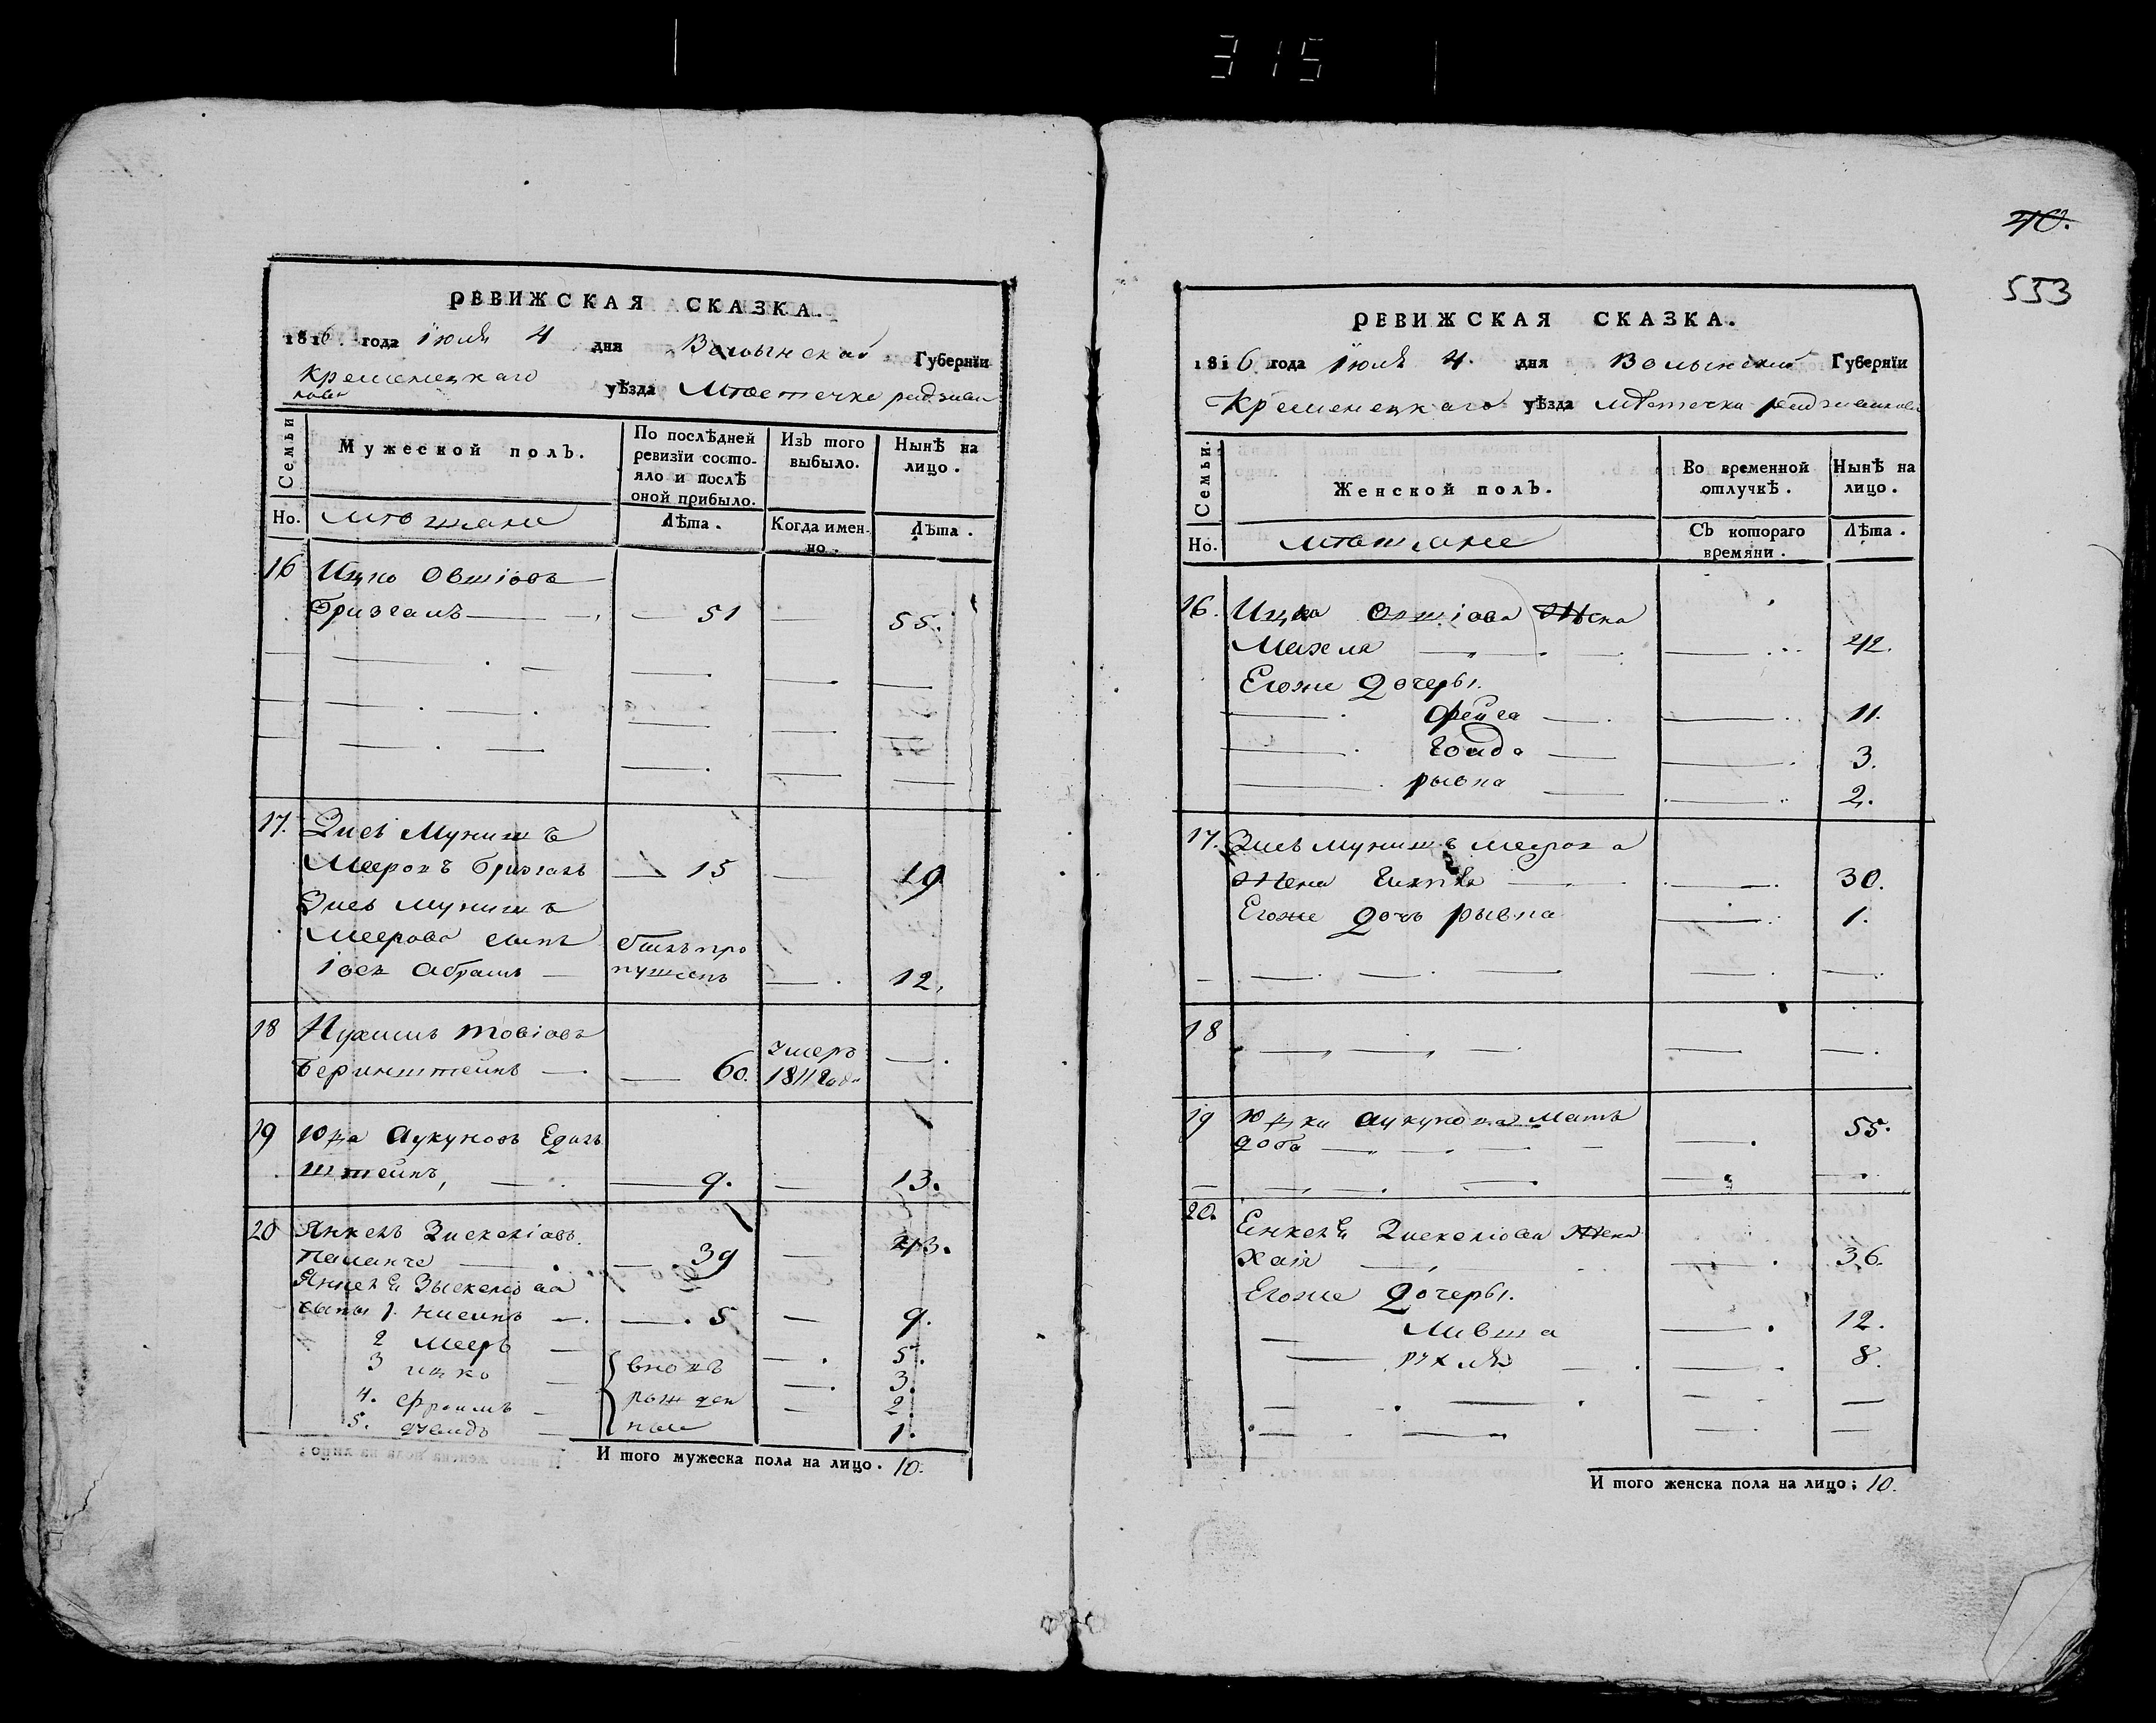 315
40.
553
РЕВИЖСКАЯ СКАЗКА.
1816. года Іюля 4 дня Волынской Губернїи
Кременецкаго уѣзда Мѣстечке радзиви
лове
Семьи
Мужеской полЪ.
По послѣдней ревизїи состояло и послѣ оной прибыло.
ИзЪ того выбыло.
НынѢ на лицо.
Но.
мѣщане
Лѣта.
Когда именно.
Лѣта.
16 Ицко Овшіовъ
Бризгалъ — 51 — 55.
17. Зись Мунишъ
Мееровъ Бризгалъ — 15 — 19
Зись Мунишъ
Меерова сынъ былъ про
Іось Абрамъ — пущенъ — 12.
18 Нухимъ Товіовъ умеръ
Беринштейнъ — 60. 1811 Года —
19 Юдка Едиль
штейнъ, — 9. — 13.
20 Янкель Зискеліовъ
— 39 — 43.
Янкеля Зыскеліова
сыны 1. нисинъ — 5 — 9.
2 Мееръ — 5.
3 ицко — вновь — 3.
4. Фроимъ — рожден — 2.
5. — ные 1.
И того мужеска пола на лицо. 10.
РЕВИЖСКАЯ СКАЗКА.
1816 года Іюля 4. дня Волынской Губернїи
Кременецкаго уѣзда мѣстечка радзивилова
Семьи.
Женской полЪ.
Во временной отлучкѢ.
НынѢ на лицо.
Но.
мѣщане
СЪ котораго времяни.
Лѣта.
16. Ицка Овшіова Жена
— 42.
Егоже Дочеры.
Фейга — 11.
Голда — 3.
рывка — 2.
17. Зись Мунишъ Меерова
Жена — 30.
Егоже Дочь рывка — 1.
18
19 Юдки Мать
доба — 55.
20. Енкеля Зискеліова Жена
Хаія — 36.
Егоже Дочеры.
Ливша — 12.
рухля — 8.
И того женска пола на лицо; 10.